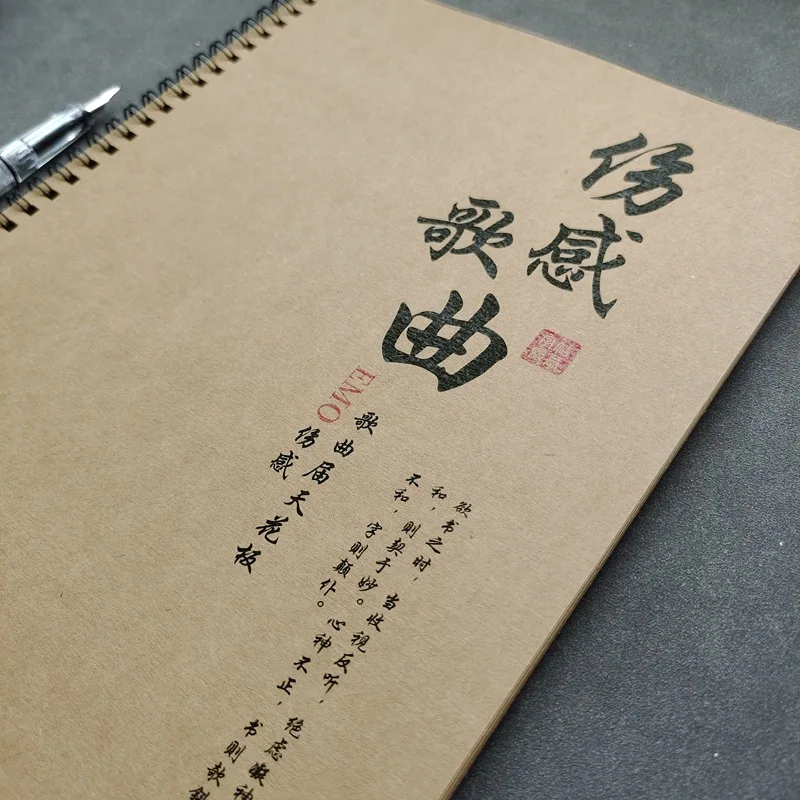 伤感
歌曲
EMO
伤感
歌曲届天花板
欲书之时，当收视反听，绝虑凝神
和，则契于妙。心神不正，书则欹斜
不和，字则颠仆。